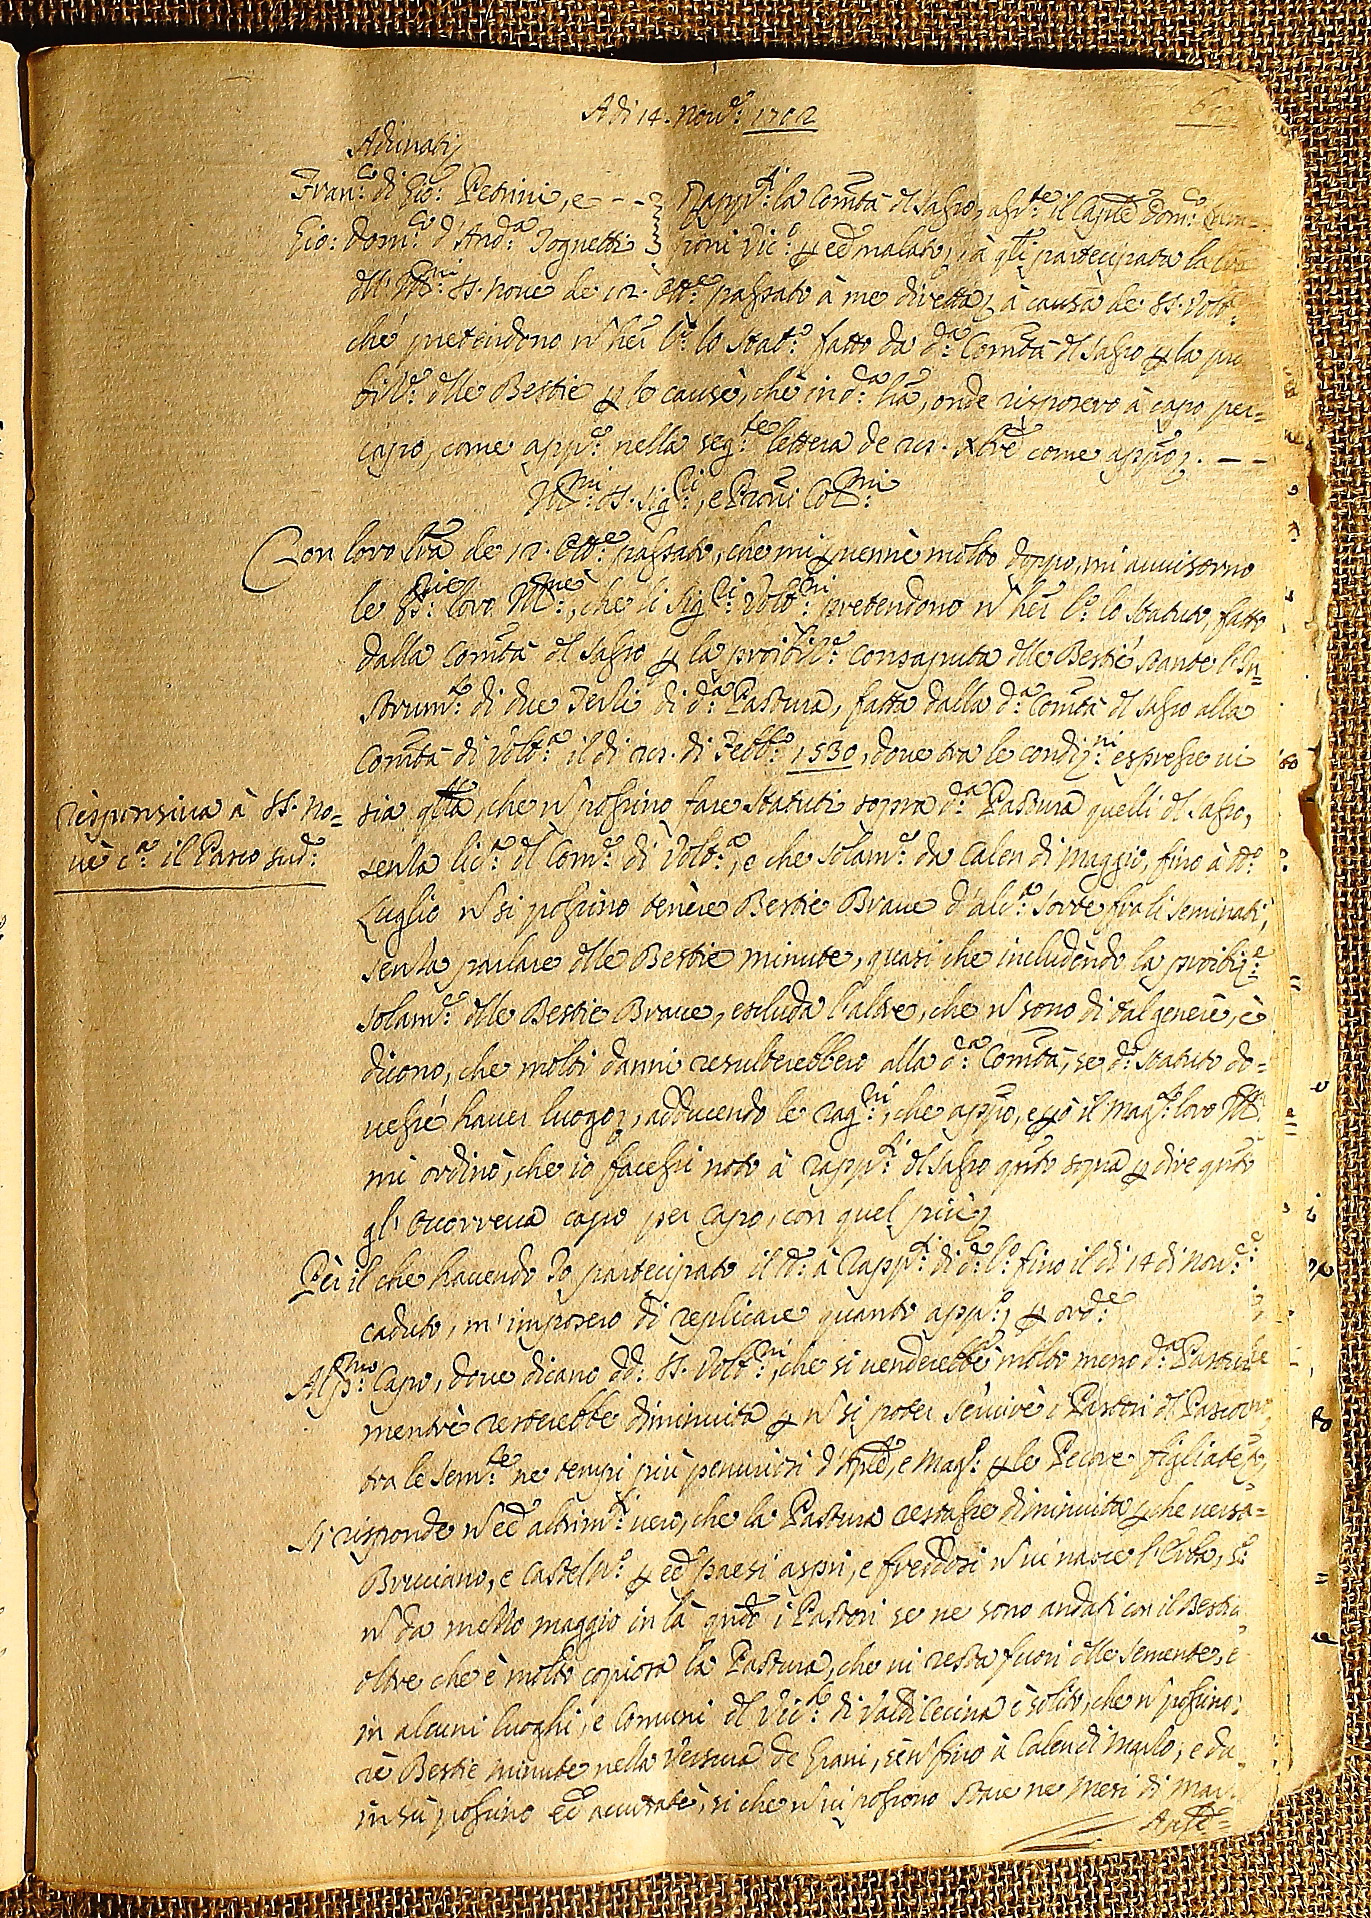 Adi 14. Nov.e 1702
Adunati
Fran.co di Gio: Petrini, e - - - Rapp.ti la Com.tà del Sasso, ass.te il Cap.ne Dom.co
Gio: Dom.co d'And.a Tognetti roni Vic.o p ess.e malato, à q.li partecipata la
dell' Ill.mi SS. Nove de 12. Ott.e passato à me diretta, à causa de SS. Volt.
che pretendono n haver l.o lo Stat.o fatto da d.a Com.tà del Sasso p la pro
delle Bestie p le cause, che in d.a l'ra, onde risposero à capo per
capo, come app.o nella seg.te lettera de come appo. - -
Ill.mi SS. Sig.ri, e Proni Col.mi
Con loro l'ra de 12. Ott.e passato, che mi p venne molto doppo, mi avvisorno
le SS.rie loro Ill.me, che li Sig.ri Volt.ni pretendono n haver l.o lo Statuto, fatto
dalla Com.tà del Sasso p la proibiz.e conseguita delle Bestie stante l'In=
strum.to di due Terzi di d.a Pastura, fatta dalla d.a Com.tà del Sasso alla
Com.tà di Volt.a il di di Febb.o 1530, dove tra le condiz.ni espresse vi
responsiva à SS. No=
ve c.a il Pasco sud.o
sia q.sta, che n possino fare Statuti sopra d.a Pastura quelli del Sasso,
senza lic.a del Com.e di Volt.a, e che solam.te da Calen di Maggio, fino à tt.o
Luglio n si possino tenere Bestie Brave d'alc.a sorte fra li seminati,
senza parlare delle Bestie minute, quasi che includendo la proibiz.e
solam.te delle Bestie Brave, escluda l'altre, che n sono di tal genere, e
dicono, che molti danni resulterebbero alla d.a Com.tà, se d.o Statuto do=
vesse haver luogo, adducendo le rag.ni, che appo, e p ciò il Mag.to loro Ill.
mi ordinò, che io facessi noto à Rapp.ti del Sasso q.nto sopra p dire q.nto
gl' occorreva capo per capo, con quel più
Per il che havendo Io partecipato il tt.o à Rapp.ti di d.o l.o fino il di 14 di Nov.e
caduto, m'imposero di replicare quanto app.o, p ord.e
Al P.mo Capo, dove dicano dd. SS. Volt.ni, che si venderebbe molto meno d.a Pastura
mentre resterebbe diminuita p n si poter servire i Pastori del Pascere
tra le sem.te ne tempi più penuriosi d'Ap.le, e Mag.o p le Pecore figliate,
Si risponde n ess.e altrim.ti vero, che la Pastura restasse diminuita p che versa=
Bucciano, e Casteln.o p ess.e paesi aspri, e freddosi n vi nasce l'Erba, se
n da mezzo maggio in là q.ndo i Pastori se ne sono andati con il Bestia
oltre che è molto copiosa la Pastura, che vi resta fuori delle semente, e
in alcuni luoghi, e Comuni del Vic.to di Valdi Cecina è solito, che n possino
re Bestie minute nella Versura de Grani, se n fino à Calen di Marzo, e da
in sù possino ess.e accusate, si che n vi possono stare ne Mesi di Mar